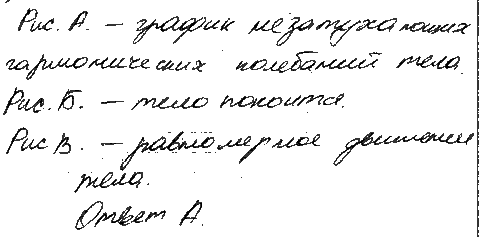 Рис. А. – график незатухающих
гармонических колебаний тела.
Рис. Б. – тело покоится.
Рис В. – равномерное движение
тела.
Ответ А.